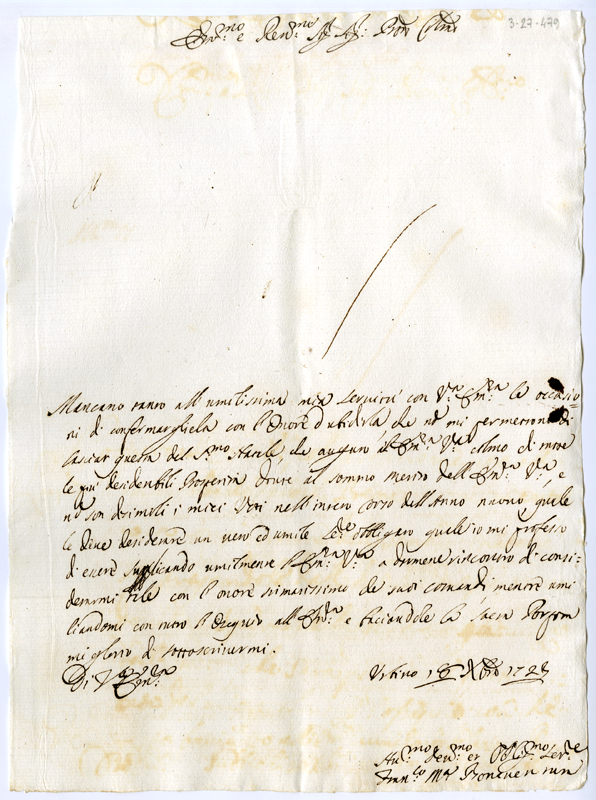 3-27-479
Em:mo e Rev:mo Sig: Sig: Pron Colmo
Mancano tanto all'umilissima mia servitù con V:a Em:za le occasio
ni di confermargliela con l'onore d'ubidirla che nō mi permettono di
lasciar questa del S:mo Natale, che auguro all'Em:za V:a colmo di tutte
le più desiderabili Prosperità dovute al sommo merito dell'Em:za V:a, e
nō son dissimili i miei Voti nell'intero corso dell'Anno nuovo, quale
le deve desiderare un vero ed umile Se:re obligato quale io mi professo
di essere supplicando umilmente l'Em:za V:a a darmene riscontro di consi-
derarmi tale con l'onore stimatissimo de suoi comandi mentre umi
liandomi con tutto l'ossequio all'Em:za e baciandole la Sacra Porpora
mi glorio di sottoscrivermi.
Di V:a Em:za
Urbino 1 Xbre 172
Hu:mo Dev:mo et Obl:mo Ser:re
Fran:co M:a Bonaventura